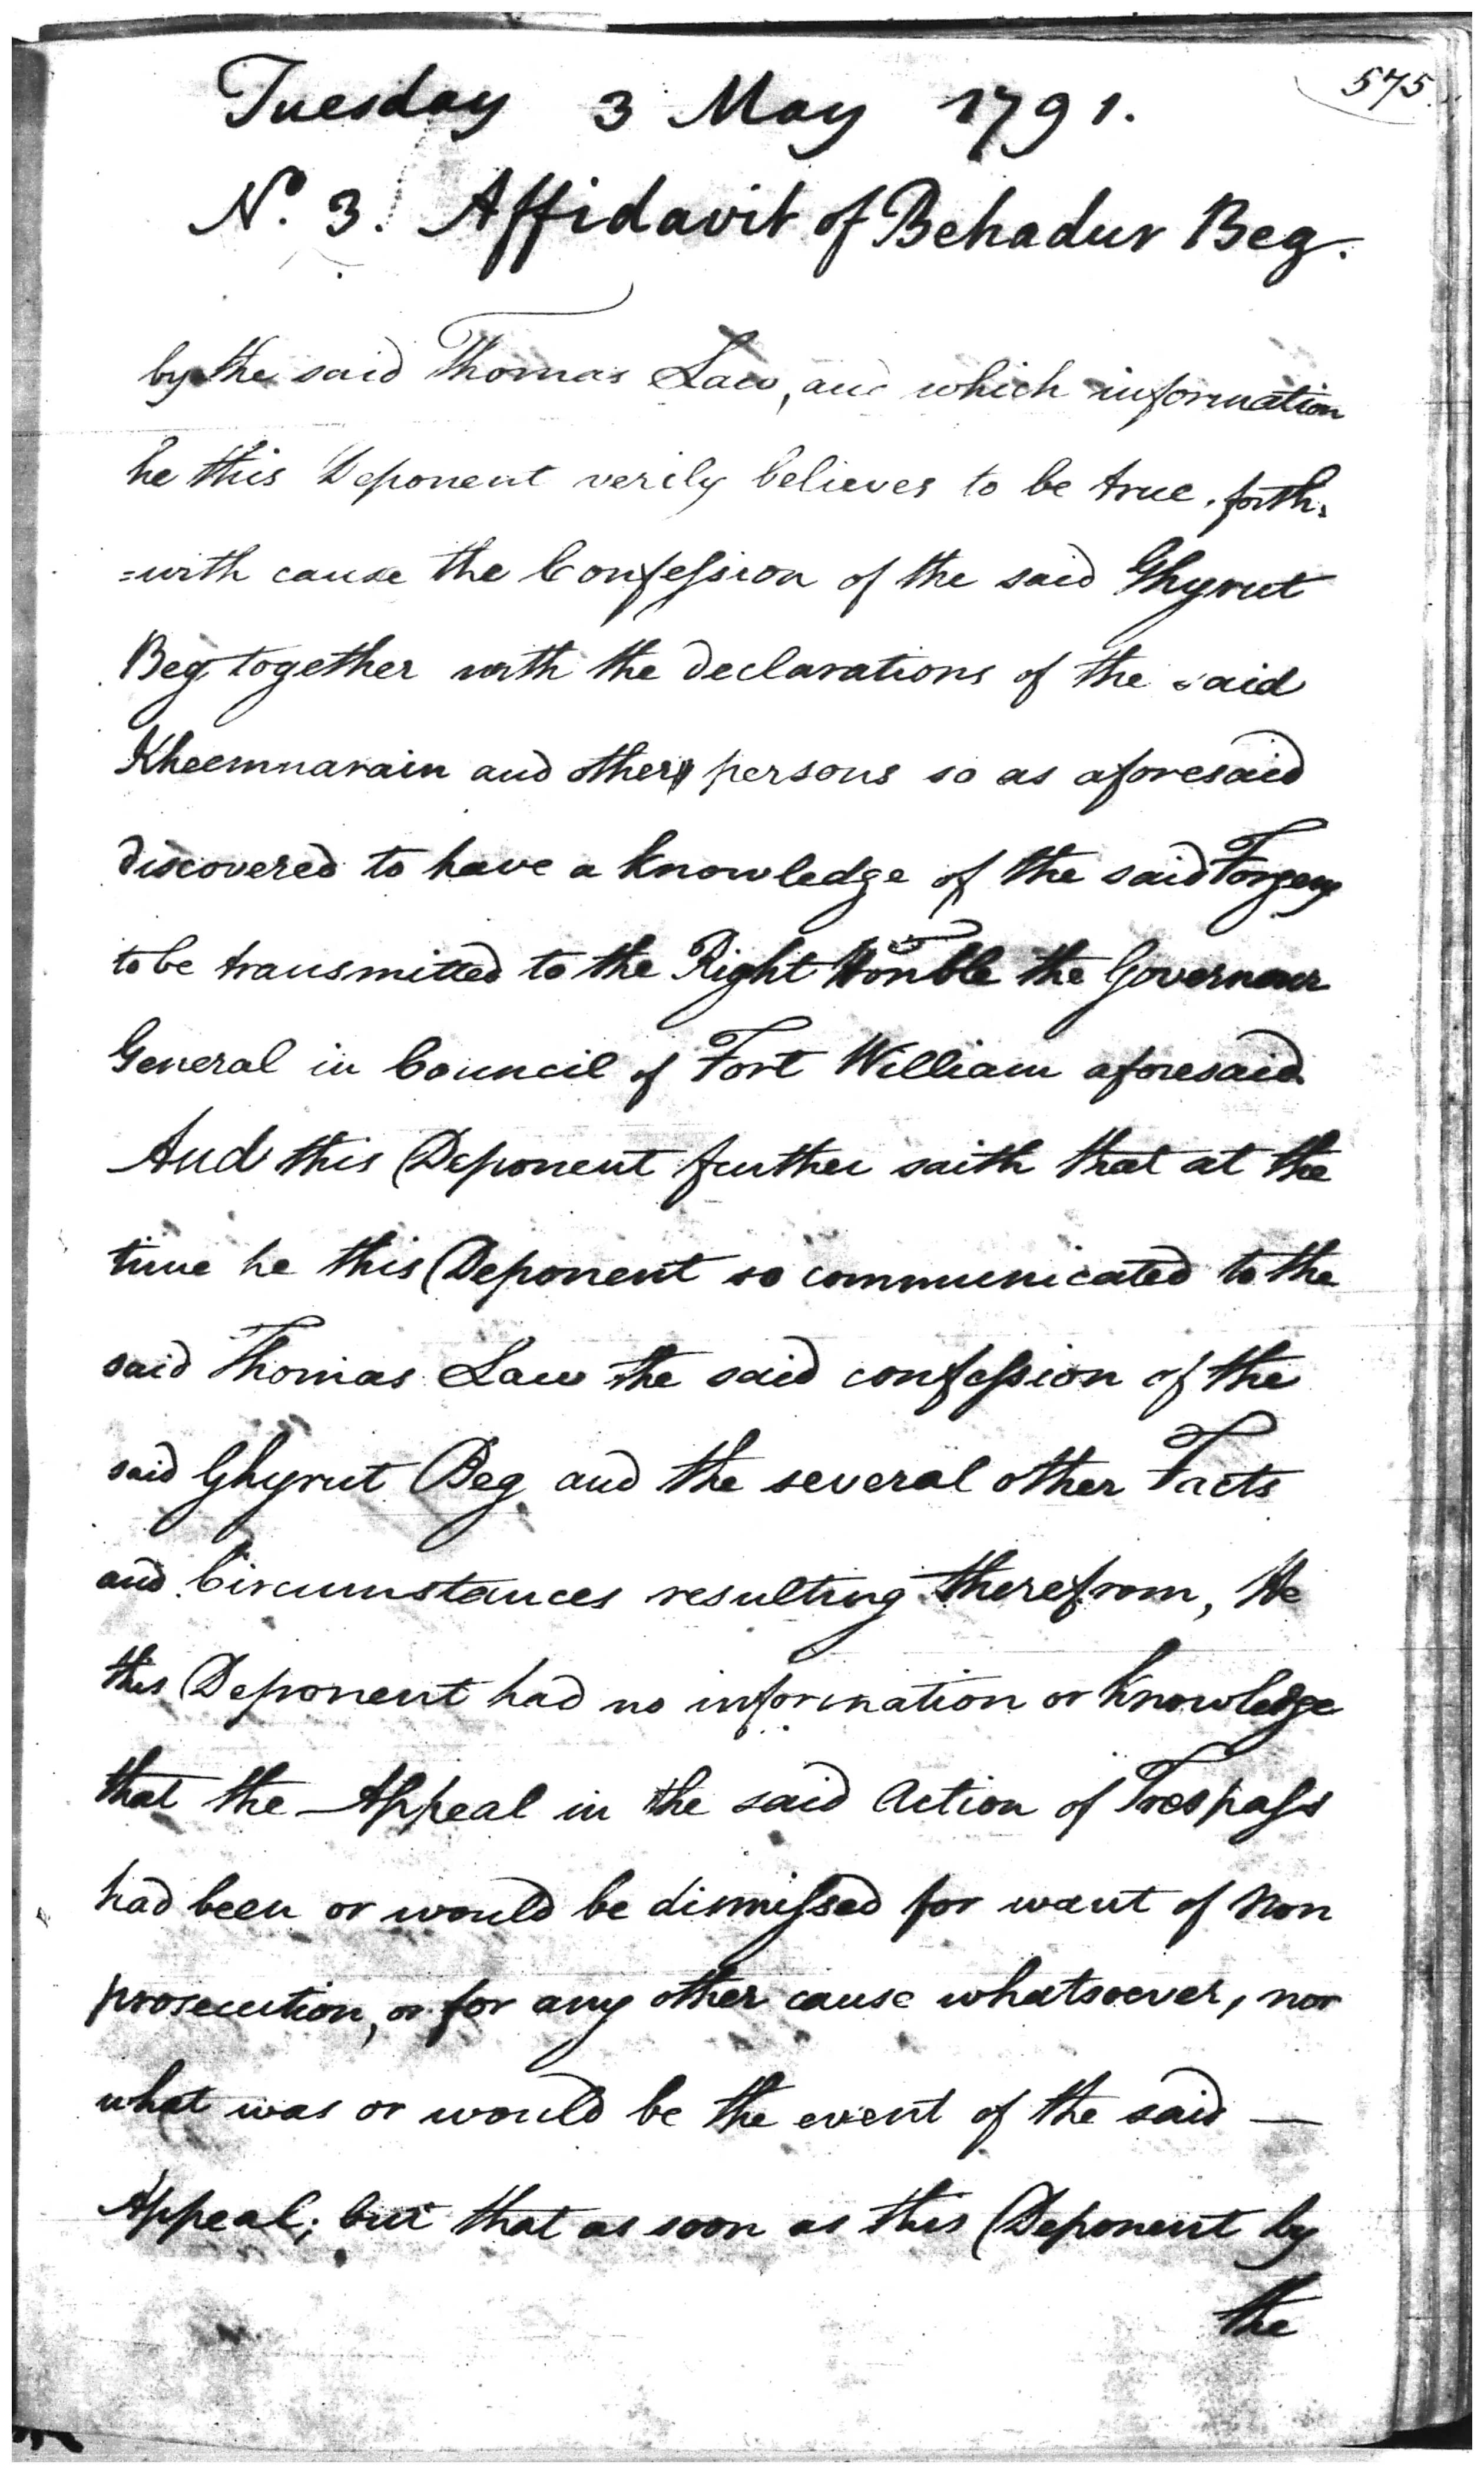 575.
Tuesday 3 May 1791.
No. 3. Affidavit of Behadur Beg.
by the said Thomas Law, and which information
he this Deponent verily believes to be true, forth=
=with cause the Confeſsion of the said Ghyrut
Beg together with the declarations of the said
Kheemnarain and other persons so as aforesaid
discovered to have a knowledge of the said Forgery
to be transmitted to the Right Honble the Governour
General in Council of Fort William aforesaid.
And this Deponent further saith that at the
time he this Deponent so communicated to the
said Thomas Law the said confeſsion of the
said Ghyrut Beg and the several other Facts
and Circumstances resulting therefrom, He
this Deponent had no information or knowledge
that the Appeal in the said Action of Trespaſs
had been or would be dismiſsed for want of Non
prosecution, or for any other cause whatsoever, nor
what was or would be the event of the said —
Appeal; but that as soon as this Deponent by
the